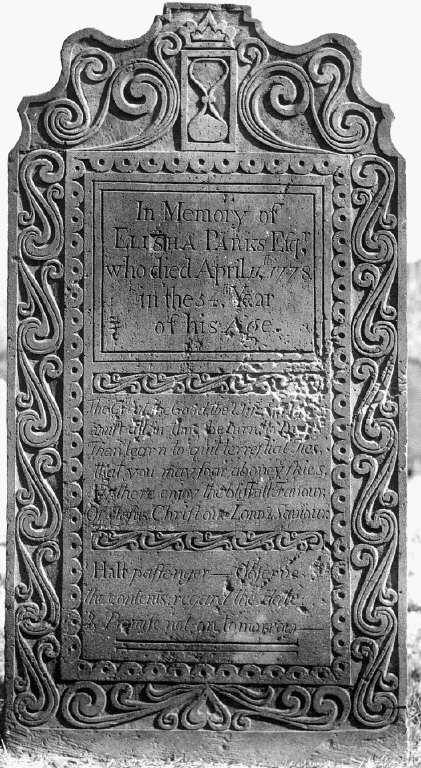 In Memory of
ELISHA PARKS Esq.r
who died April 11.th 1778
in the 54.th Year
of his Age.
the Good, the
must all in time be turn'd to
Then learn to quit terrestial
that you may soar above y skies,
there enjoy the blissfull Favour,
Of Jesus Christ our LORD & Saviour.
Halt passenger — Observe
the contents, regard the date
& Promise not on tomorrow —